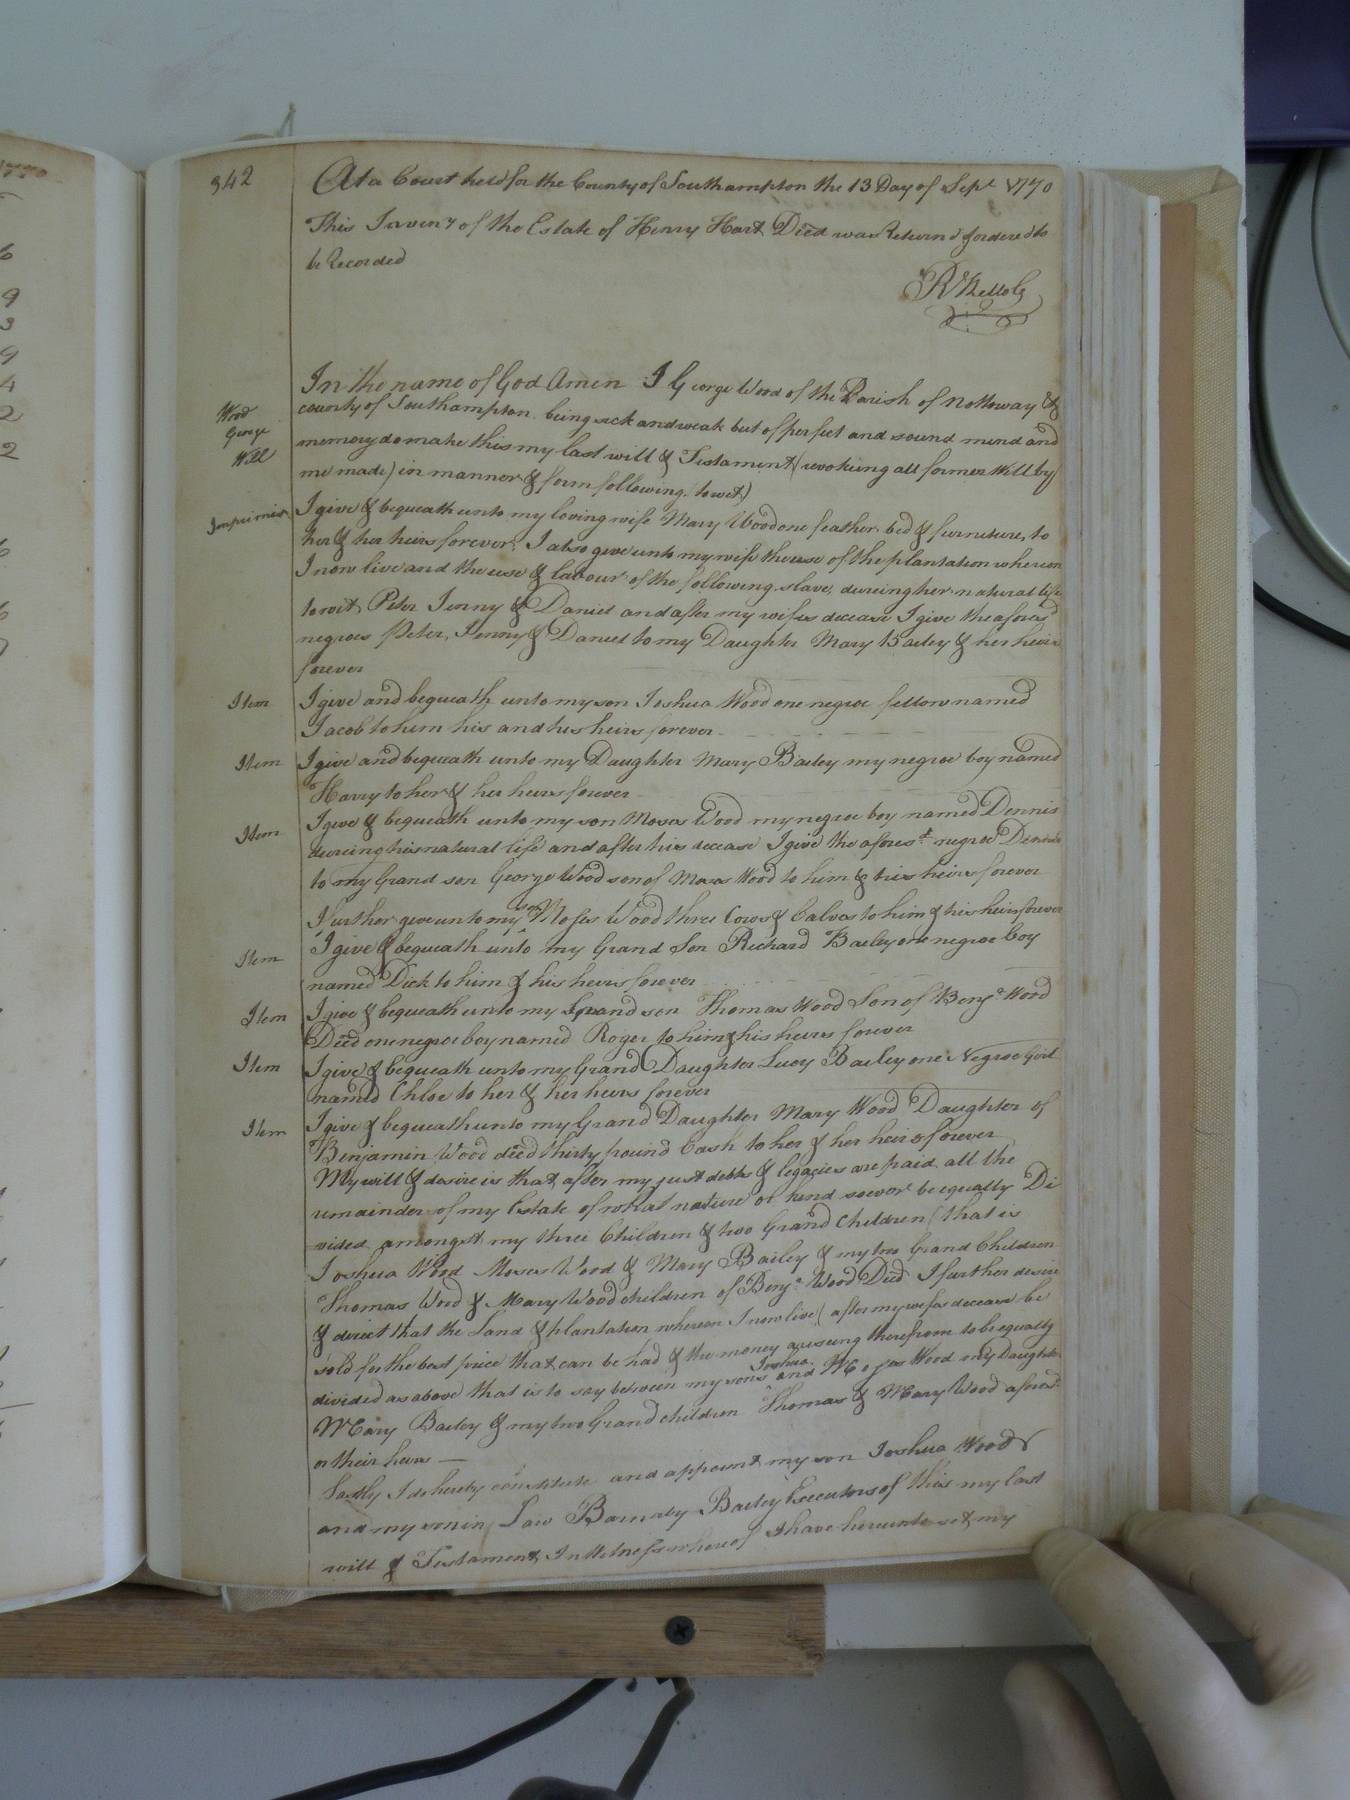 342
At a Court held for the County of Southampton the 13 Day of Sept 1770
This Inveny of the Estate of Henry Hart Deed was Returnd & ordered to
be Recorded
In the name of God Amen I George Wood of the Parish of Nottoway &
Wood
George
Will
county of Southampton being sick and weak but of perfect and sound mind and
memory do make this my last will & Testament (revokeing all former Will by
me made) in manner & form following (towit)
Imprimis I give & bequeath unto my loving wife Mary Wood one feather bed & furniture, to
her & her heirs forever, I also give unto my wife the use of the plantation whereon
I now live and the use & labour of the following slave, dureing her natural life
to wit, Peter Jenny & Daniel and after my wifes decease I give the aforesd
negroes Peter, Jenny & Daniel to my Daughter Mary Bailey & her heirs
forever
Item I give and bequeath unto my son Joshua Wood one negroe fellow named
Jacob to him his and his heirs forever
Item I give and bequeath unto my Daughter Mary Bailey my negroe boy named
Harry to her & her heirs forever
Item I give & bequeath unto my son Moses Wood my negroe boy named Dennis
dureing his natural life and after his decease I give the aforest negroe Dennis
to my Grand son George Wood son of Moses Wood to him & his heirs forever
I further give unto my son Moses Wood three Cows & Calves to him & his heirs forever
Item I give & bequeath unto my Grand Son Richard Bailey one negroe boy
named Dick to him & his heirs forever
Item I give & bequeath unto my Grand son Thomas Wood Son of Benja Wood
Deed one negroe boy named Roger to him & his heirs forever
Item I give & bequeath unto my Grand Daughter Lucy Bailey one Negroe Girl
named Chloe to her & her heirs forever
Item I give & bequeath unto my Grand Daughter Mary Wood Daughter of
Benjamin Wood deed thirty pound Cash to her & her heirs forever
My will & desire is that after my just debts & legacies are paid all the
remainder of my Estate of what nature or kend soever be equally Di
vided amongst my three Children & two Grand Children (that is
Joshua Wood Moses Wood & Mary Bailey & my two Grand Children
Thomas Wood & Mary Wood children of Benja Wood Deed I further desire
& direct that the Land & plantation whereon I now live (after my wifes decease be
sold for the best price that can be had & the money ariseing therefrom to be equally
divided as above that is to say between my sons Joshua and Moses Wood my Daughter
Mary Bailey & my two Grand children Thomas & Mary Wood aforesd
or their heirs
Lastly I do hereby constitute and appoint my son Joshua Wood
and my son in Law Barnaby Bailey Executors of this my last
will & Testament In Witness whereof I have hereunto set my